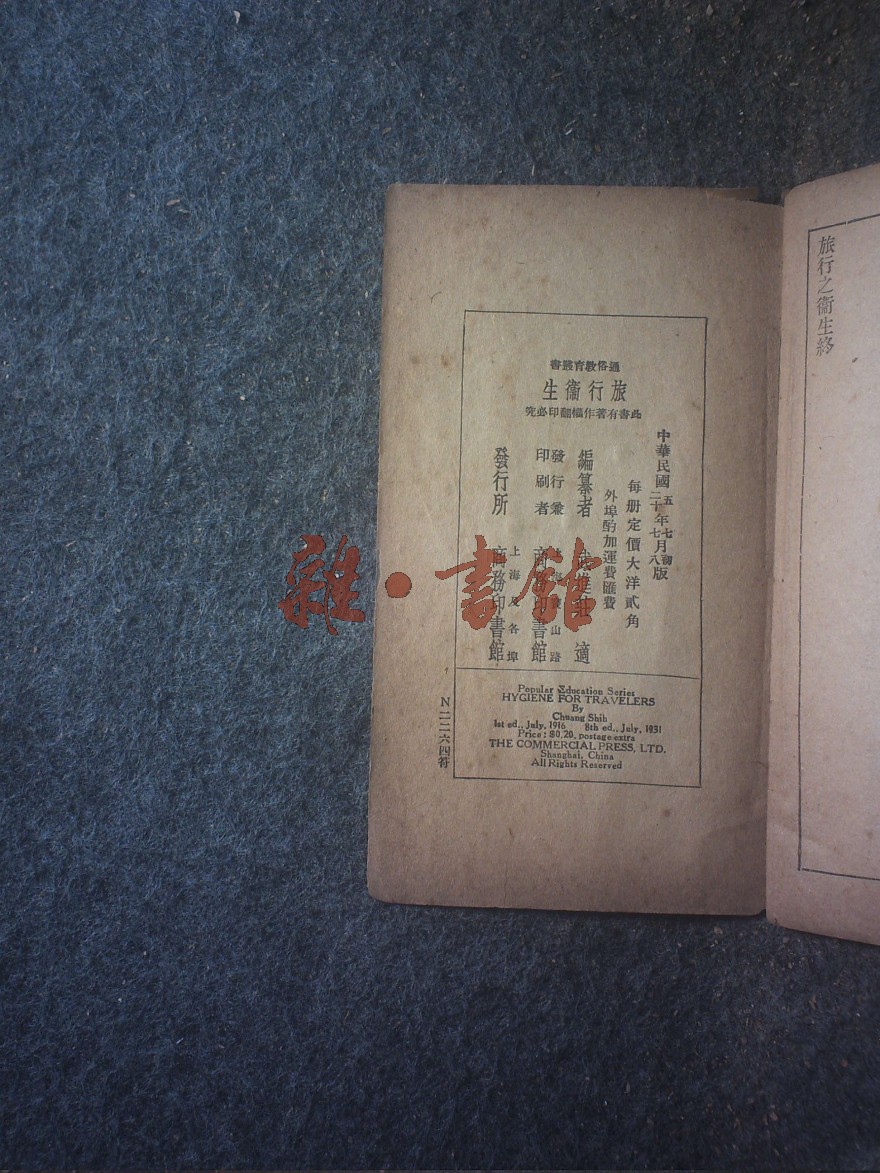 旅行之衞生終
通俗教育叢書
旅行衞生
此書有著作權翻印必究
中華民國五年七月初版
二十年七月八版
每册定價大洋貳角
外埠酌加運費匯費
編纂者 武進莊適
發行兼印刷者 上海寶山路 商務印書館
發行所 上海及各埠 商務印書館
Popular Education Series
HYGIENE FOR TRAVELERS
By
Chuang Shih
1st ed., July, 1916 8th ed., July, 1931
Price: $0.20, postage extra
THE COMMERCIAL PRESS, LTD.
Shanghai, China
All Rights Reserved
N二二六四符
雜·書館